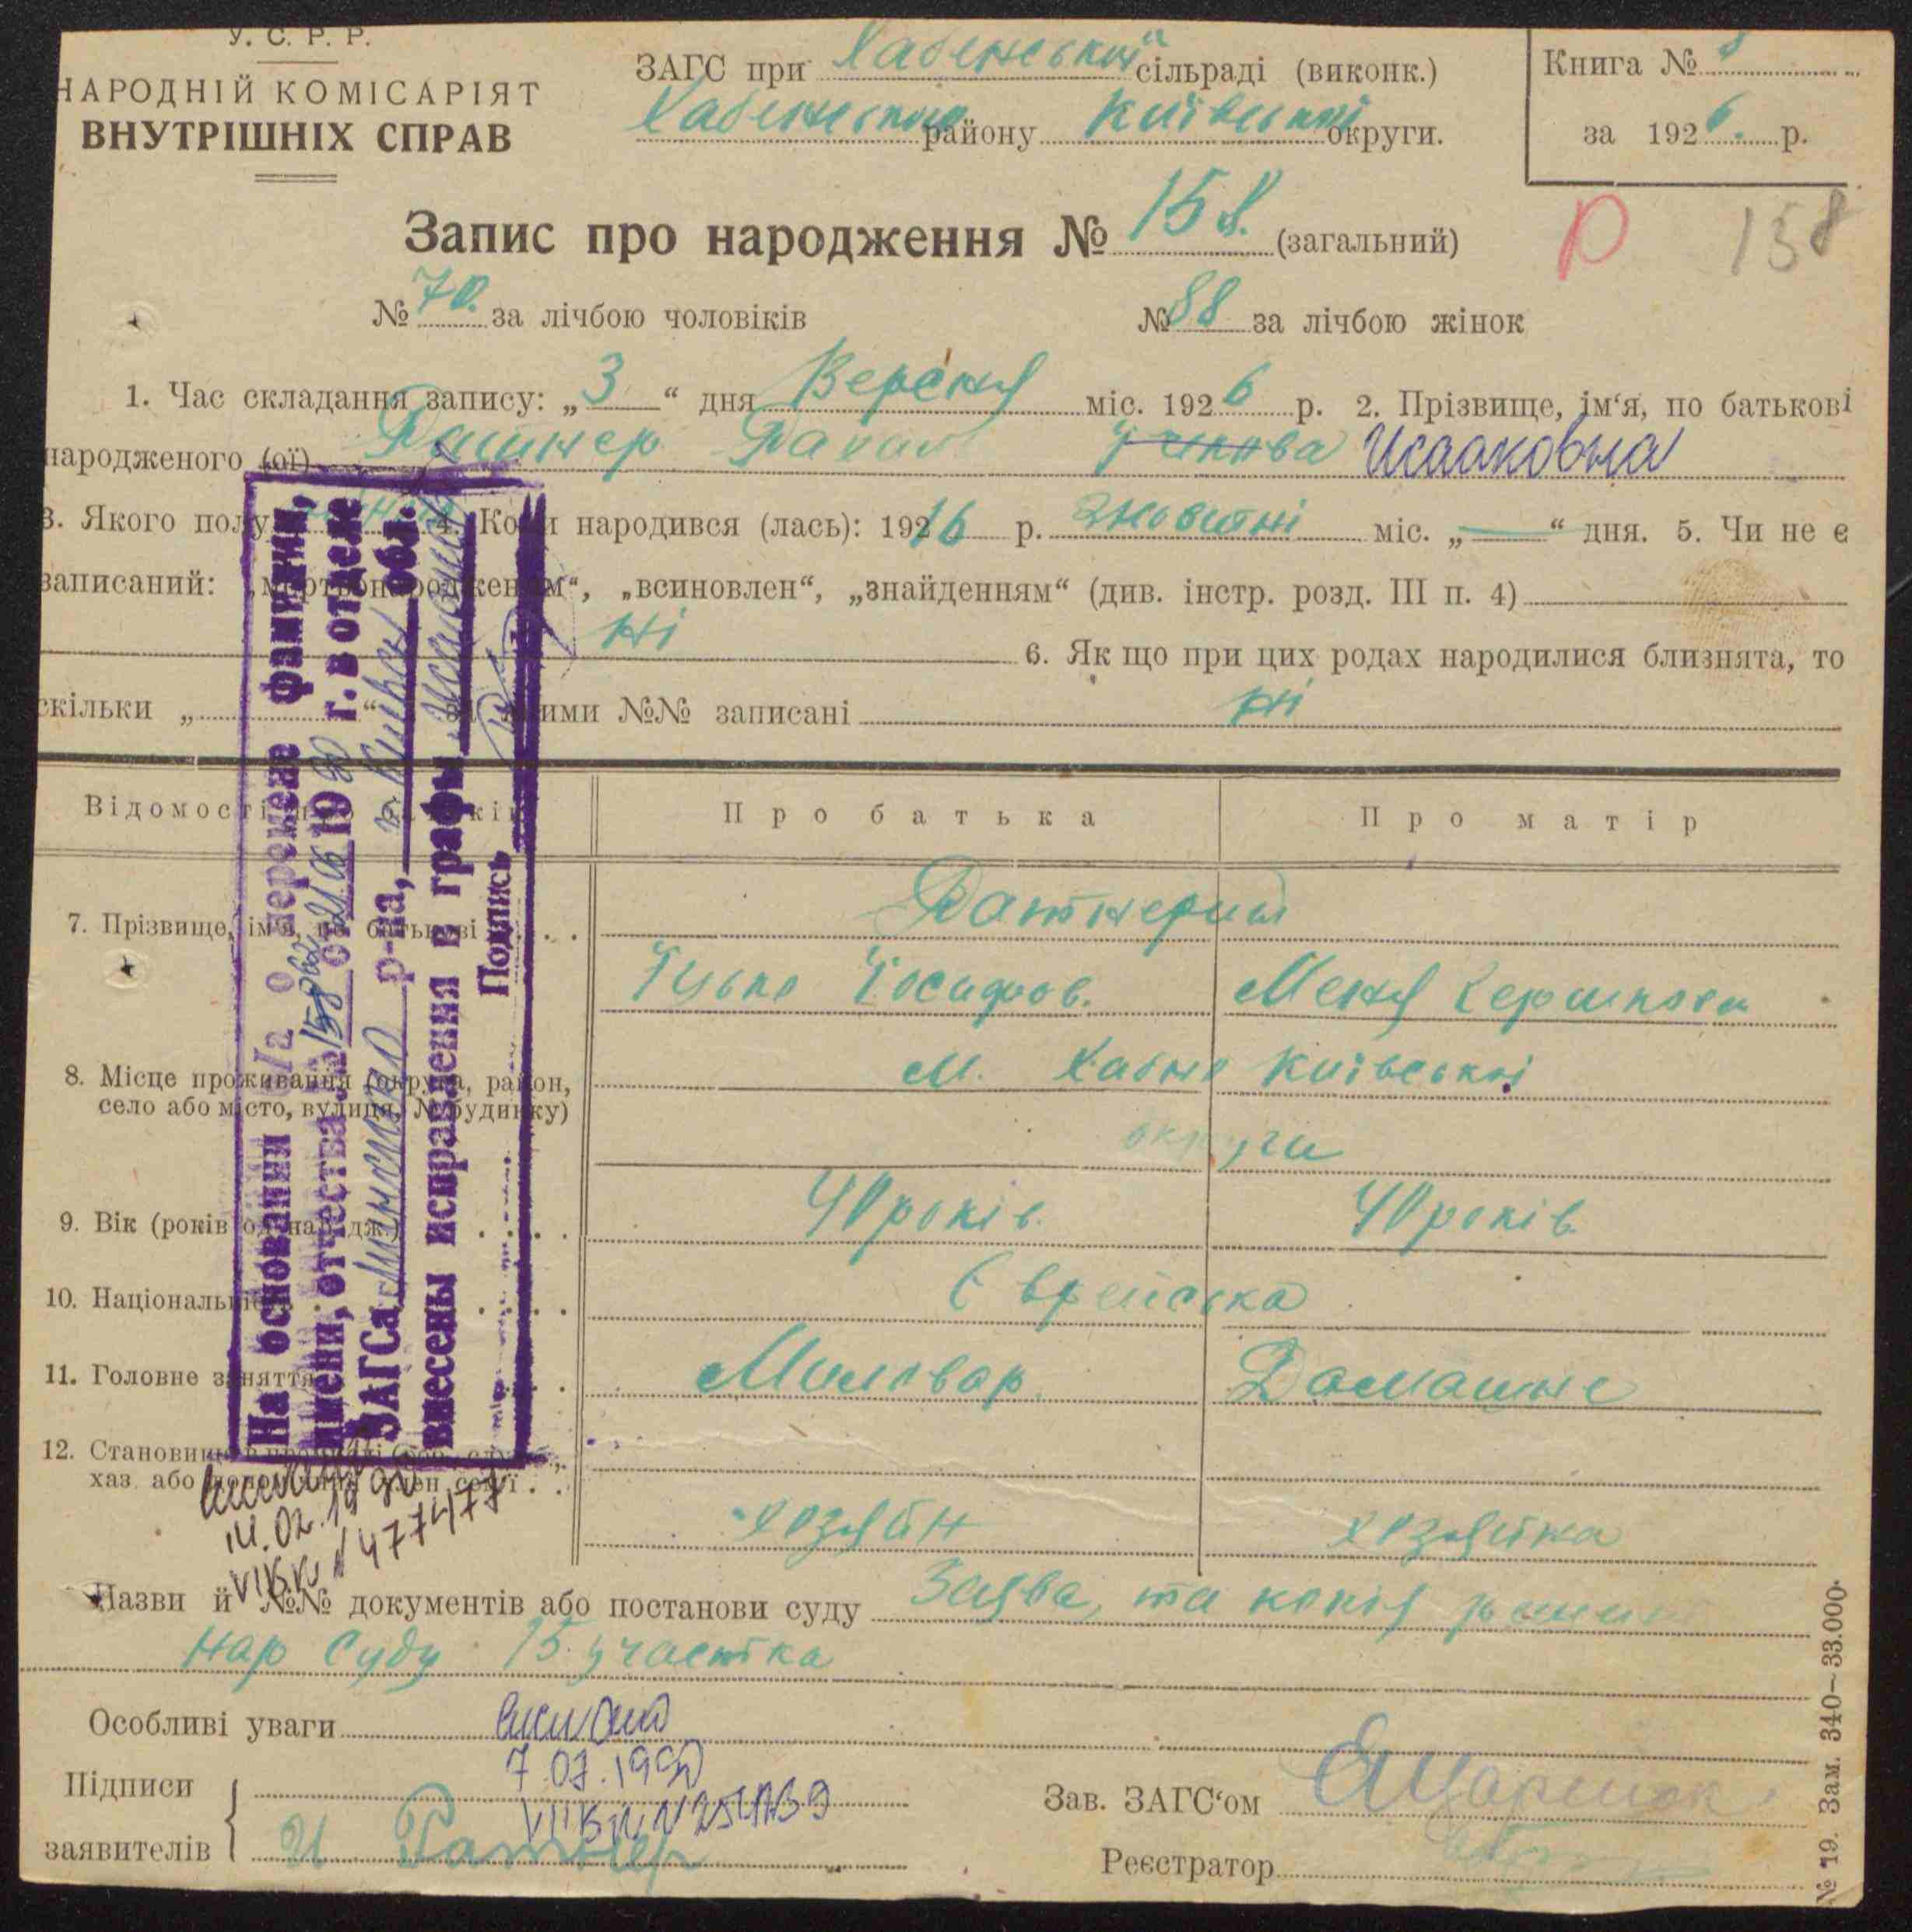 У. С. Р. Р.
НАРОДНІЙ КОМІСАРІЯТ
ВНУТРІШНІХ СПРАВ
ЗАГС при Хабенській сільраді (виконк.)
Хабенського району Київської округи.
Книга №
за 1926. р.
Запис про народження № 158. (загальний)
Р 158
№ 70. за лічбою чоловіків
№ 88 за лічбою жінок
1. Час складання запису: „3“ дня Версня міс. 1926 р. 2. Прізвище, ім‘я, по батькові
народженого (ої) Исааковна
3. Якого полу 4. Коли народився (лась): 19216 р. Жовтні міс. „—“ дня. 5. Чи не є
записаний: „мертвонародженим“, „всиновлен“, „знайденням“ (див. інстр. розд. III п. 4)
Ні
6. Як що при цих родах народилися близнята, то
скільки „ “ за якими №№ записані ні
Відомості про батьків
Про батька
Про матір
7. Прізвище, ім‘я, по батькові . .
Ратнери
Іцько Йосифов.
Меня Гершкова
8. Місце проживання (округа, район,
село або місто, вулиця, № будинку)
М. Хабне Київської
округи
9. Вік (років од народж.) . . . .
40 років.
40 років.
10. Національність . . . .
Єврейська
11. Головне заняття
Миловар
Домашнє
12. Становище в промислі
хаз. або член сем‘ї . .
хозяїн
хозяйка
Назви й №№ документів або постанови суду Заява, та копія
Нар Суду 15 участка
Особливі уваги
7.07.1990
Підписи
заявителів
И Ратнер
Зав. ЗАГС‘ом
Реєстратор
На основании з/а о перемене фамилии,
имени, отчества № 158 от 21.06 1990 г. в отделе
ЗАГСа р-на, г. обл.
внесены исправления в графы
Подпись
14.02.19
№ 477477
№ 19. Зам. 340—33.000.